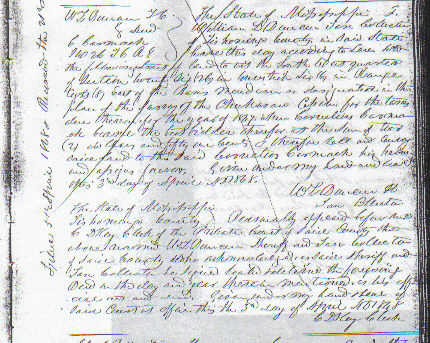 W L Duncan T C The State of Mississippi
To Deed William L Duncan Tax Collector
C Carmack of Tishomingo County in said State
have this day according to Law sold
the following land to wit the South West quarter
of Section twenty six (26) in Township six (6) in Range
East of the Basis Meridian as designated in the
plan of the Survey of the Chickasaw Cession for the taxes
due thereon for the year of 1847 when Cornelius Carmack
became the best bidder therefor at the sum of two
dollars and fifty one cents I therefore sell and convey
said land to the said Cornelius Carmack his heirs
and assigns forever. Given under my hand and seal
this 3rd day of April AD 1848.
W L Duncan
Tax Collector
The State of Mississippi
Tishomingo County Personally appeared before me
C D Key Clerk of the Probate Court of said County the
above named W L Duncan Sheriff and Tax Collector
of said County who acknowledged as said Sheriff and
Tax Collector he signed sealed delivered the foregoing
Deed on the day and year therein mentioned as his
act and deed. Given under my hand seal of
said Court at office this the 3rd day of April AD 1848
C D Key Clerk
Filed 3rd April 1848 Recorded the